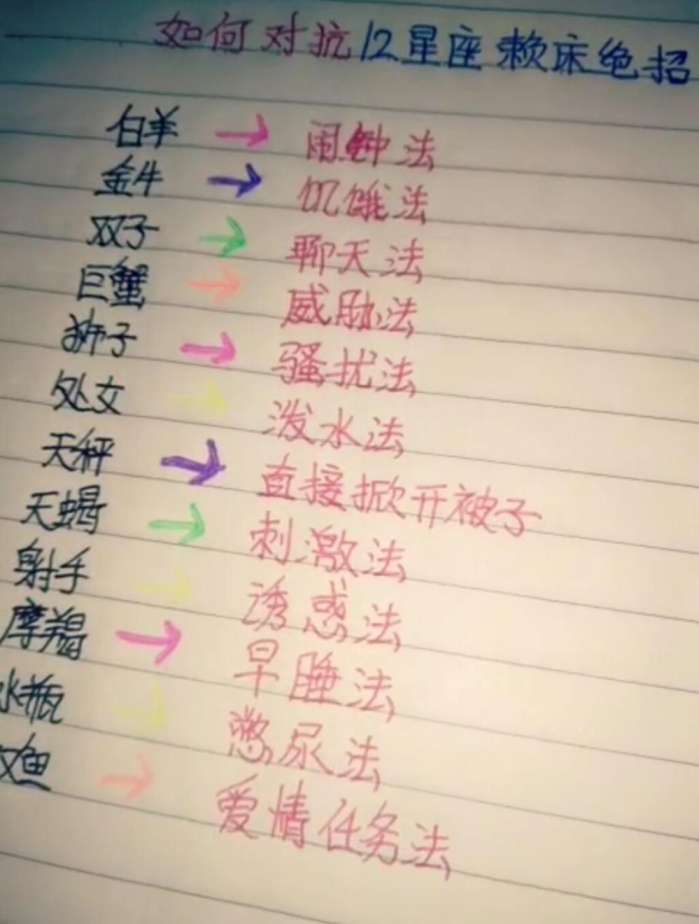 如何对抗12星座赖床绝招
白羊 → 闹钟法
金牛 → 饥饿法
双子 → 聊天法
巨蟹 → 威胁法
狮子 → 骚扰法
处女 → 泼水法
天秤 → 直接掀开被子
天蝎 → 刺激法
射手 → 诱惑法
摩羯 → 早睡法
水瓶 → 憋尿法
双鱼 → 爱情任务法